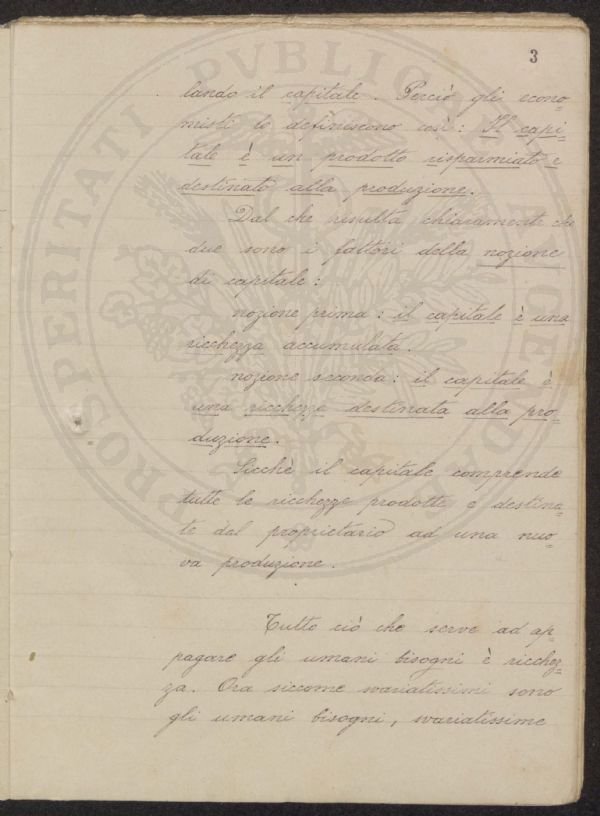 3
lando il capitale. Perciò gli econo-
misti lo definiscono così: Il capi-
tale è un prodotto risparmiato e
destinato alla produzione.
Dal che risulta chiaramente che
due sono i fattori della nozione
di capitale:
nozione prima: il capitale è una
ricchezza accumulata.
nozione seconda: il capitale è
una ricchezza destinata alla pro-
duzione.
Sicchè il capitale comprende
tutte le ricchezze prodotte e destina-
te dal proprietario ad una nuo-
va produzione.
Tutto ciò che serve ad ap-
pagare gli umani bisogni è ricchez-
za. Ora siccome svariatissimi sono
gli umani bisogni, svariatissime
PROSPERITATI PVBLICAE AVGENDAE